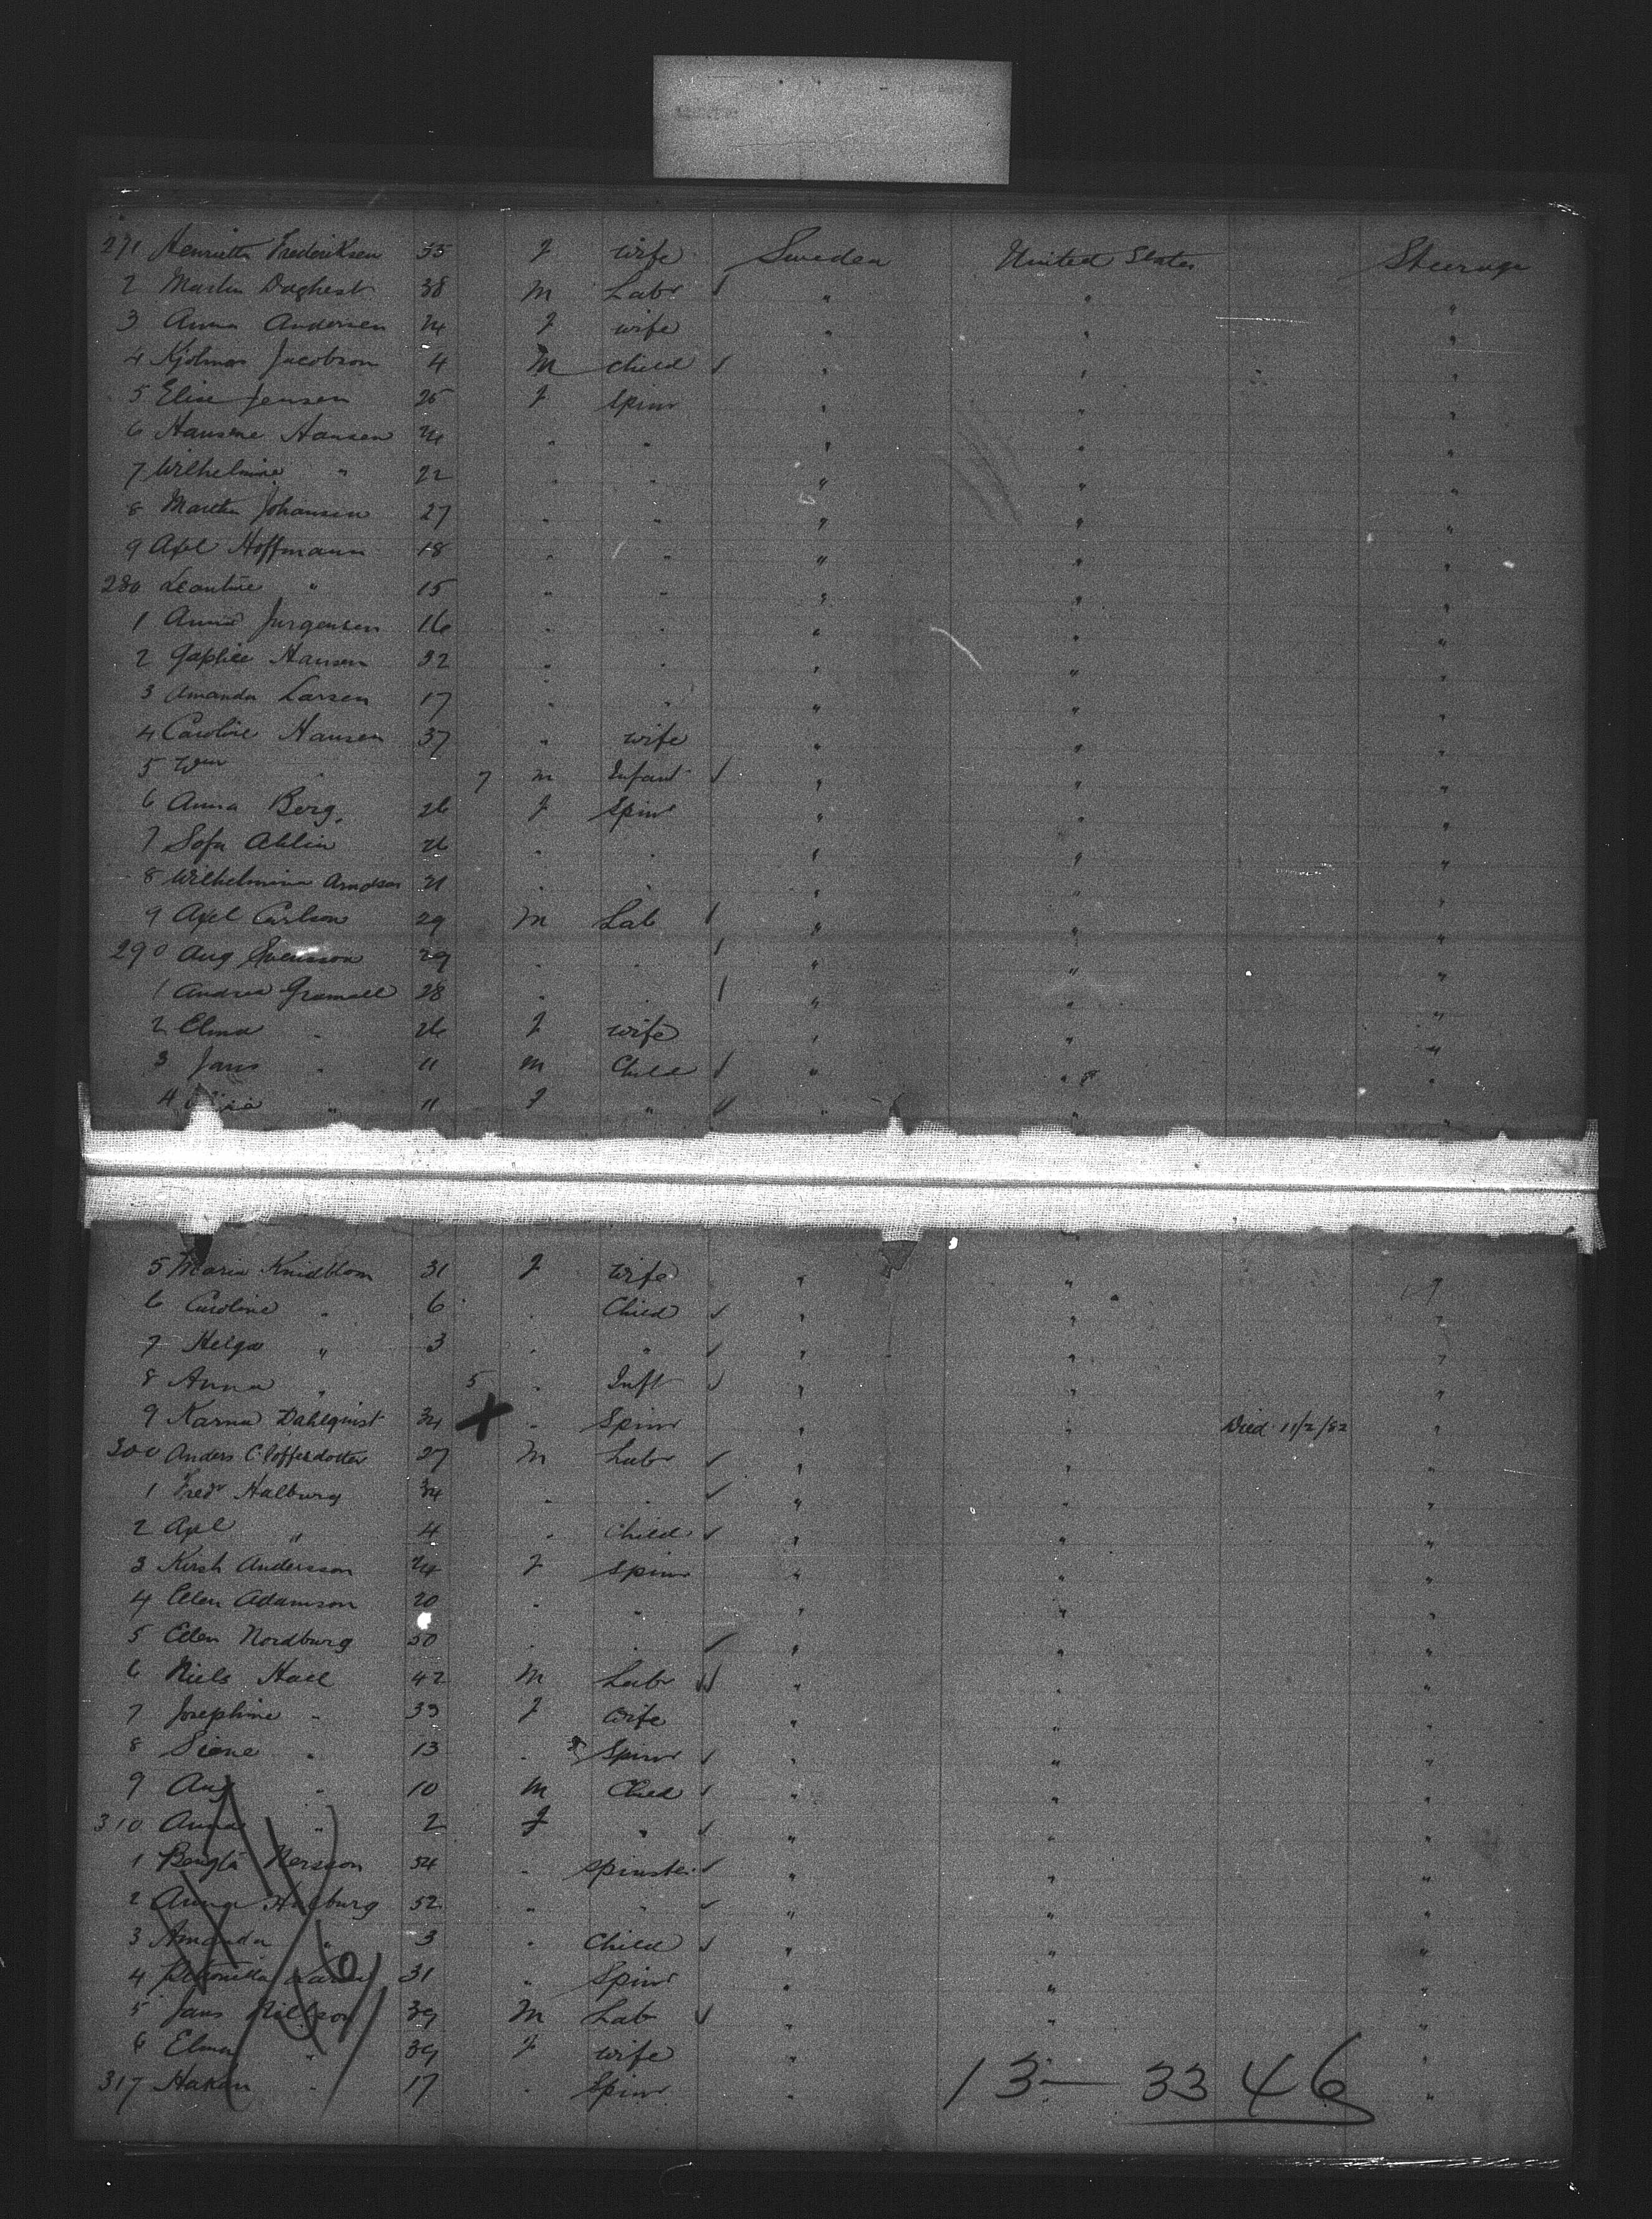 271 Henrietta Frederiksen 35 f wife Sweden United States Steerage
2 Martin Daghest 38 m Labr ✓ " " "
3 Anna Andersen 24 f wife " " "
4 Hjolmar Jacobson 4 M child ✓ " " "
5 Elise Jensen 25 f Spinr " " "
6 Hansene Hansen 24 " " " " "
7 Wilhelmine " 22 " " " " "
8 Martha Johansen 27 " " " " "
9 Axel Hoffmann 18 " " " " "
280 Leontine " 15 " " " " "
1 Anna Jurgensen 16 " " " " "
2 Hansen 32 " " " " "
3 Amanda Larsen 17 " " " " "
4 Caroline Hansen 37 " wife " " "
5 Wm " 7 m Infant ✓ " " "
6 Anna Berg. 26 f Spinr " " "
7 Sofa Ahlin 26 " " " " "
8 Wilhelmina 21 " " " " "
9 Axel Carlson 29 M Lab / " " "
290 Aug Svensson 29 " " / " " "
1 Andrew Gramall 28 " " / " " "
2 Elma " 26 f wife " " "
3 Jans " 11 m Child ✓ " " "
4 " 11 f " ✓ " " "
5 Maria Knidblom 31 f Wife " " "
6 Caroline " 6 " Child ✓ " " "
7 Helga " 3 " " ✓ " " "
8 Anna " 5 " Inft ✓ " " "
9 Karna Dahlquist 34 X " Spinr " " Died 11/2/82 "
300 Anders C. 27 M Labr ✓ " " "
1 Fredr Halburg 34 " " ✓ " " "
2 Axel " 4 " Child ✓ " " "
3 Kirsh Andersson 24 f Spinr " " "
4 Elen Adamson 20 " " " " "
5 Elen Nordburg 50 " " ✓ " " "
6 Niels Hall 42 M Labr ✓ " " "
7 Josephine " 39 f Wife " " "
8 Siene " 13 " Spinr ✓ " " "
9 Aug " 10 M Child ✓ " " "
310 Anna " 2 f " ✓ " " "
1 Bengta Persson 54 " spinster ✓ " " "
2 Halburg 52 " " ✓ " " "
3 Amanda " 3 " Child ✓ " " "
4 31 " Spinr " " "
5 Jans Nillson 39 M Lab ✓ " " "
6 Elma " 39 f wife " " "
317 Hakan " 17 " Spinr " "
13 — 3346